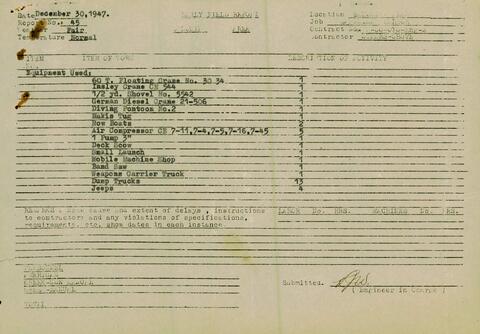 Date December 30, 1947. DAILY FIELD REPORT Location
Report No. 45 Job
Weather Fair Contract No.
Temperature Normal Contractor
ITEM ITEM OF WORK DESCRIPTION OF ACTIVITY
Equipment Used:
60 T. Floating Crane No. 30 34 1
Insley Crane CE 544 1
1/2 yd. Shovel No. 5542 1
German Diesel Crane 21-506 1
Diving Pontoon No.2 1
Makis Tug 1
Row Boats
Air Compressor CE 7-11,7-4,7-5,7-16,7-45 5
1 Pump 3" 1
Deck Scow 1
Small Launch 1
Mobile Machine Shop 1
Band Saw 1
Weapons Carrier Truck 1
Dump Trucks 13
Jeeps 4
REMARKS: Note cause and extent of delays, instructions LABOR No. HRS. MACHINES No. HRS.
to contractors and any violations of specifications,
requirements, etc. show dates in each instance.
Submitted.
( Engineer in Charge )